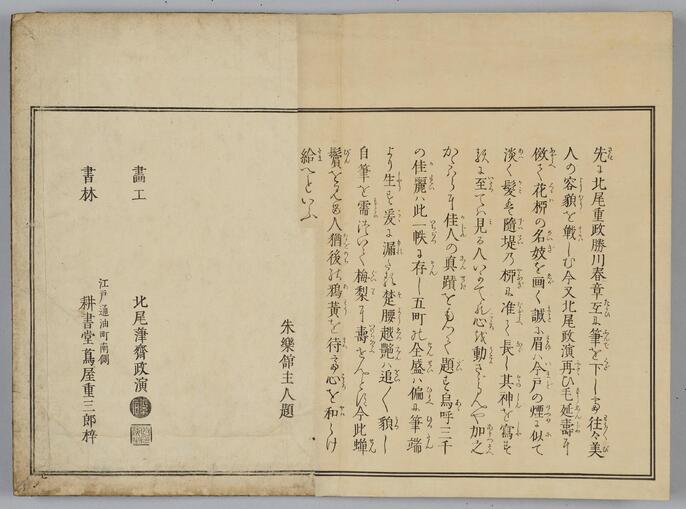 先に北尾重政勝川春章互に筆を下して往々美
人の容貌を戦しむ今又北尾政演再ひ毛延壽に
倣て花柳の名妓を画く誠に眉ハ今戸の煙に似て
淡く髪は隨堤の柳に准して長し其神を寫す
に至てハ見る人いかてか心を動さゝらんや加之
かたハらに佳人の真蹟をもつて題す烏呼三千
の佳麗ハ此一帙に存し五町の全盛ハ偏に筆端
より生す爰に漏たる楚腰越艶ハ追て貌し
自筆を需 梅梨に壽 んとす今此蝉
鬢をみる人猶後の鴉黄を待て心を和らけ
給へといふ
朱樂館主人題
畫工
北尾葎齋政演
書林
江戸通油町南側
耕書堂蔦屋重三郎梓